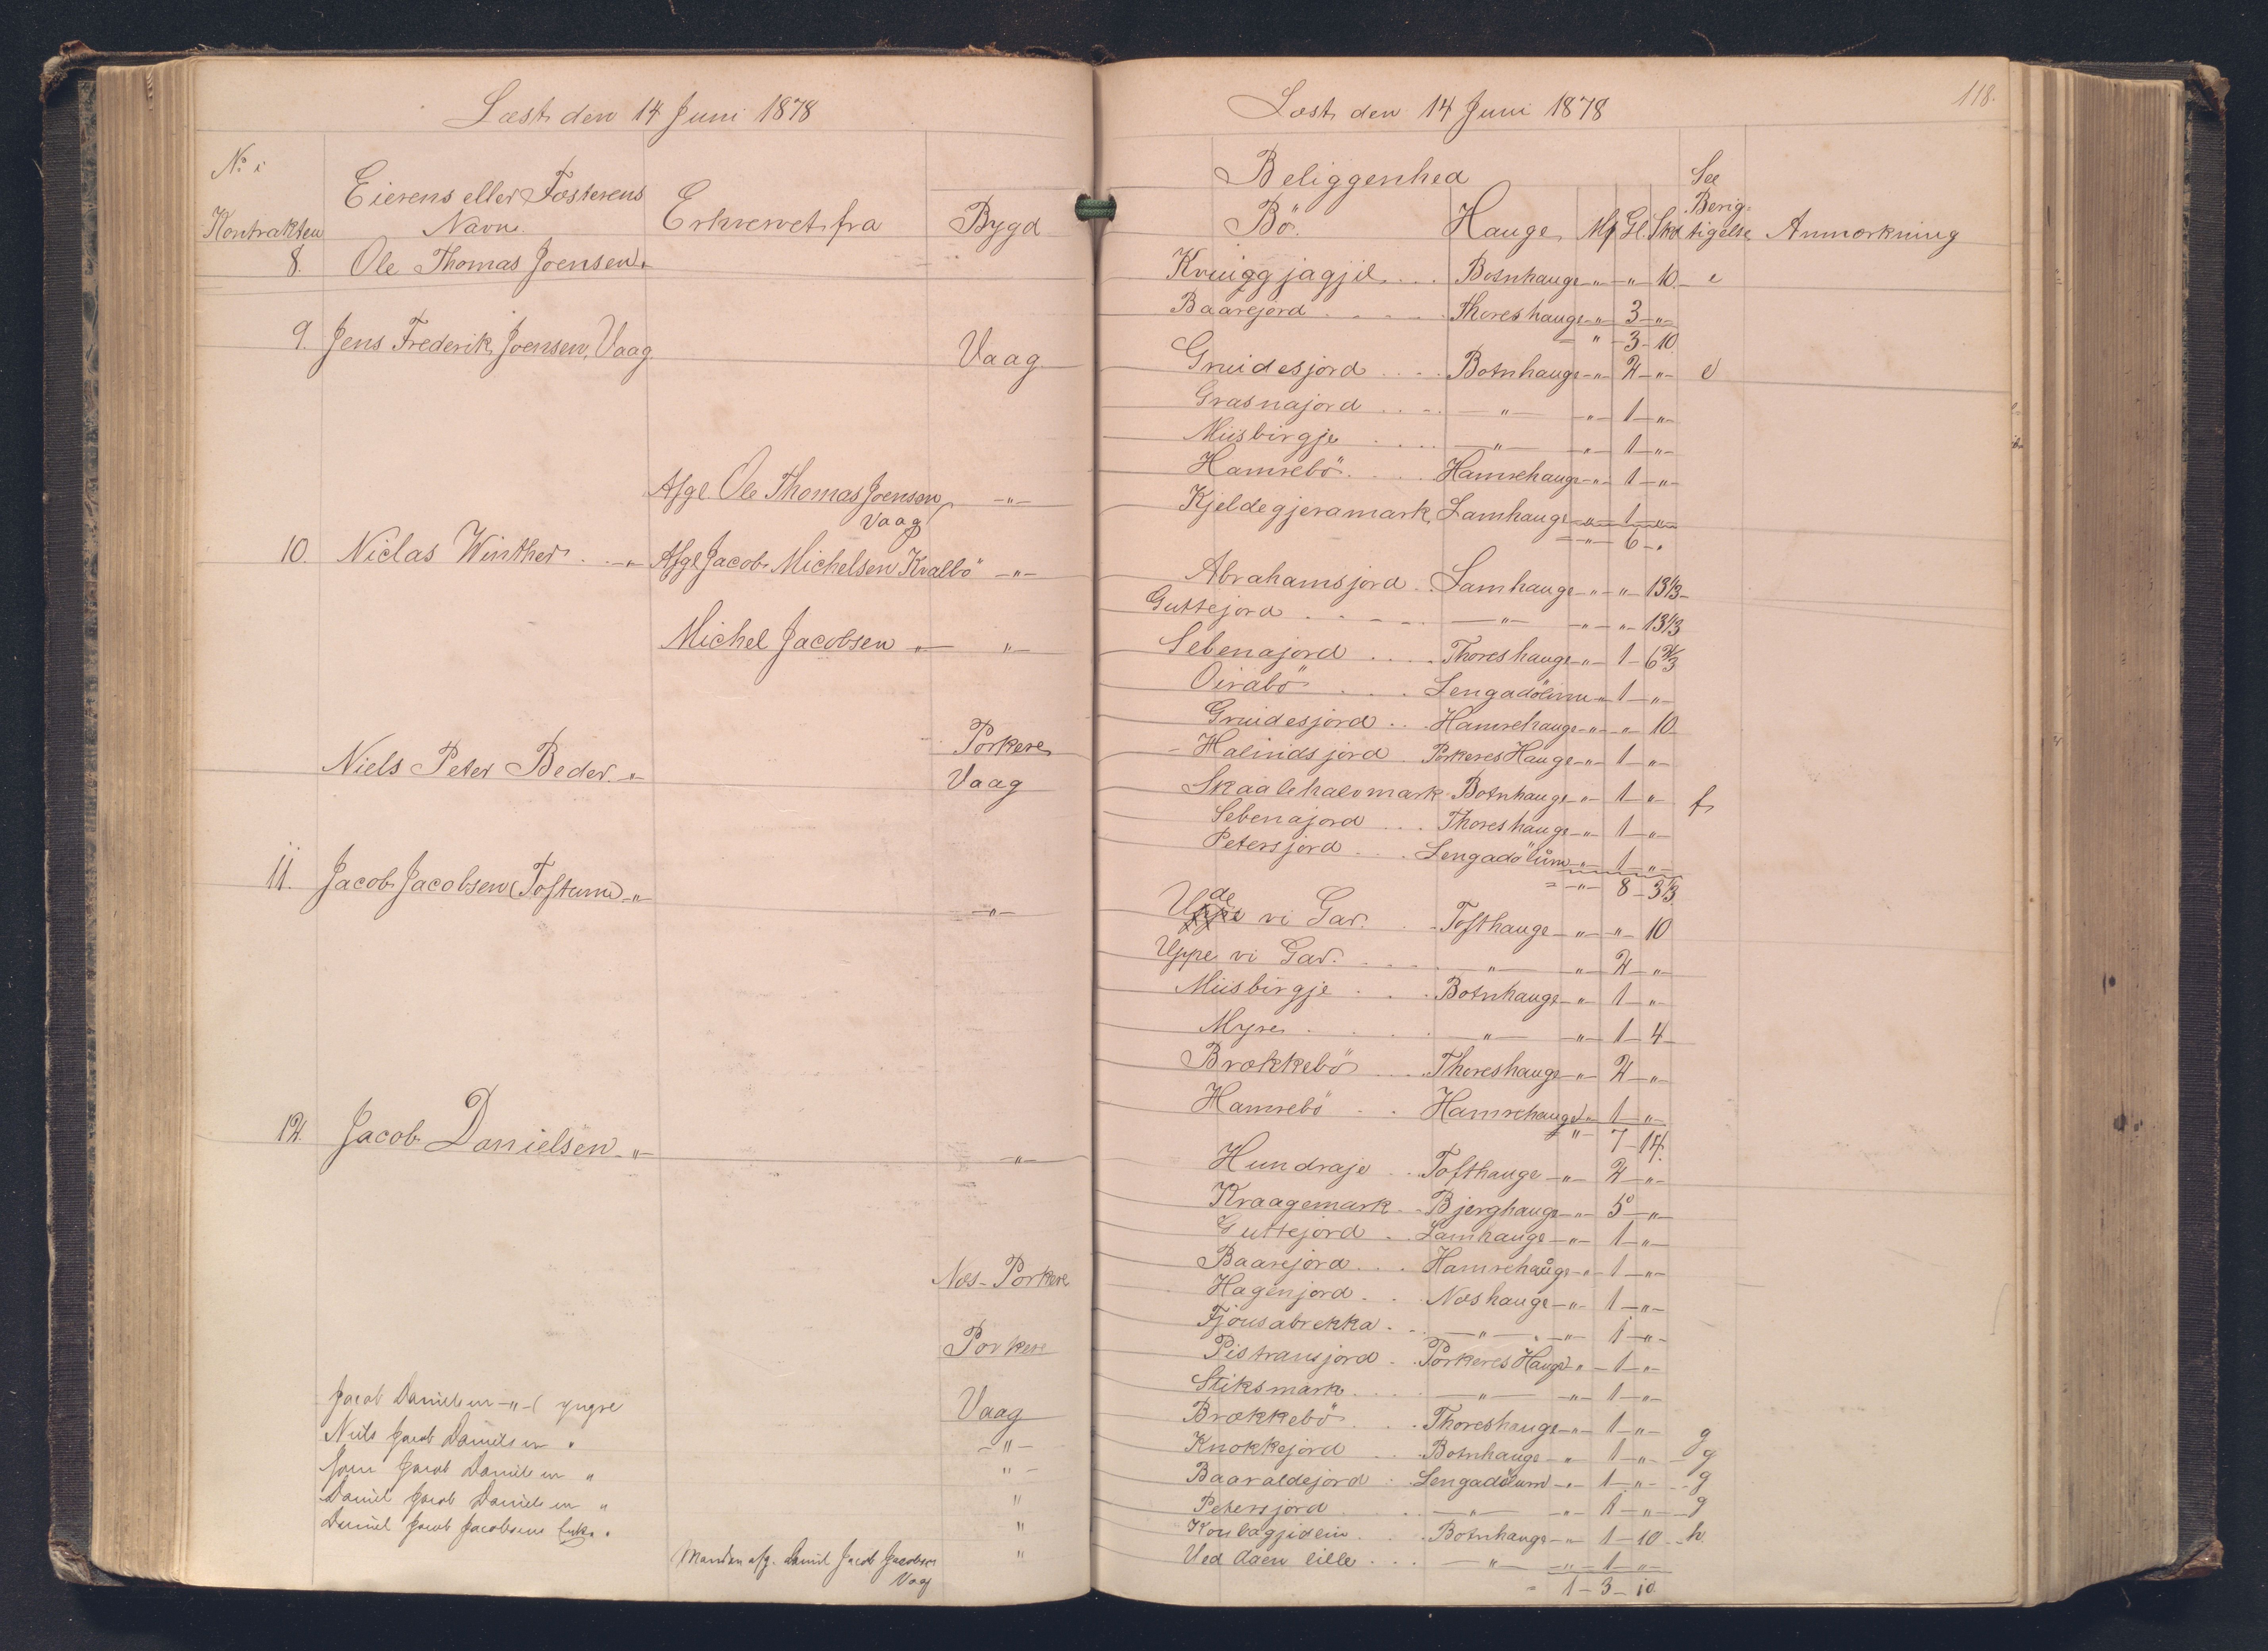 Læst den 14 Juni 1878
No i Kontrakten
Eierens eller Fæsterens Navn.
Erhvervet fra
Bygd
8. Ole Thomas Joensen.
9. Jens Frederik Joensen, Vaag
Vaag
Afgl. Ole Thomas Joensen, Vaag -"-
10. Niclas Winther . . -"- Afgl Jacob Michelsen Kvalbö -"-
Michel Jacobsen -"- -"-
Porkere
Niels Peter Beder. -"- Vaag
11. Jacob Jacobsen (Toftum) -"- -"-
12. Jacob Danielsen -"- -"-
Næs-Porkere
Porkere
Jacob Danielsen -"- yngre Vaag
Niels Jacob Danielsen " -"-
Joen Jacob Danielsen " "-
Daniel Jacob Danielsen " "
Daniel Jacob Jacobsens Enke. " "
Manden afg. Daniel Jacob Jacobsen Vaag "
Læst den 14 Juni 1878
118.
Beliggenhed
Bö. Hauge Mk Gl. Skd See Berigtigelse Anmærkning
Kruiggjagjil . . . . Botnhauge -"- -"- 10. e
Baarejord . . . . . Thoreshauge -"- 3 -"-
= " - 3 - 10.
Gruidesjord . . . . Botnhauge -"- 2 -"- e
Grasnajord . . . . -"- -"- 1 -"-
Miisbirgje . . . . -"- -"- 1 -"-
Hamrebö . . . . Hamrehauge -"- 1 -"-
Kjeldegjeramark, Lamhauge -"- 1 -"-
= -"- 6 -"
Abrahamsjord . . Lamhauge -"- -"- 13 1/3 -
Guttejord . . . . . -"- -"- -"- 13 1/3
Sebenajord . . . . Thoreshauge -"- 1 - 6 2/3
Oirabö . . . . Lengadölum -"- 1 -"-
Gruidesjord . . Hamrehauge -"- -"- 10.
- Halinidsjord . Porkeres Hauge -"- 1 -"-
Skaalehalvmark. Botnhauge -"- 1 -"- f
Sebenajord . . . Thoreshauge -"- 1 -"-
Petersjord . . . Lengadölum -"- 1 -"-
= -"- 8 - 3 1/3
Uppe de vi Gar. . . Tofthauge -"- -"- 10
Uppe vi Gar. . . . . -"- -"- 2 -"-
Miisbirgje . . . . Botnhauge -"- 1 -"-
Myre . . . . . -"- -"- 1 - 4 -
Brækkebö . . . Thoreshauge -"- 2 -"-
Hamrebö . . . Hamrehauge -"- 1 -"-
= "- 7 - 14.
Hundraje . . Tofthauge -"- 2 -"-
Kraagemark . . Bjerghauge -"- 5 -"-
Guttejord . . Lamhauge -"- 1 -"-
Baarejord . . . Hamrehauge -"- 1 -"-
Hagenjord . . . Næshauge -"- 1 -"-
Fjousabrekka . . . -"- -"- 1 -"-
Pistransjord . . Porkeres Hauge -"- 1 -"-
Stiksmark . . . . -"- -"- 1 -"-
Brækkebö . . . Thoreshauge -"- 1 -"- g
Knokkejord . . . Botnhauge -"- 1 -"- g
Baaraldejord . . Lengadölum -"- 1 -"- g
Petersjord . . . -"- -"- 1 -"- g
Koulagjidlin . . . Botnhauge -"- 1 - 10 - h.
Ved Aaen lille . . . -"- -"- 1 -"-
= 1 - 3 - 10.